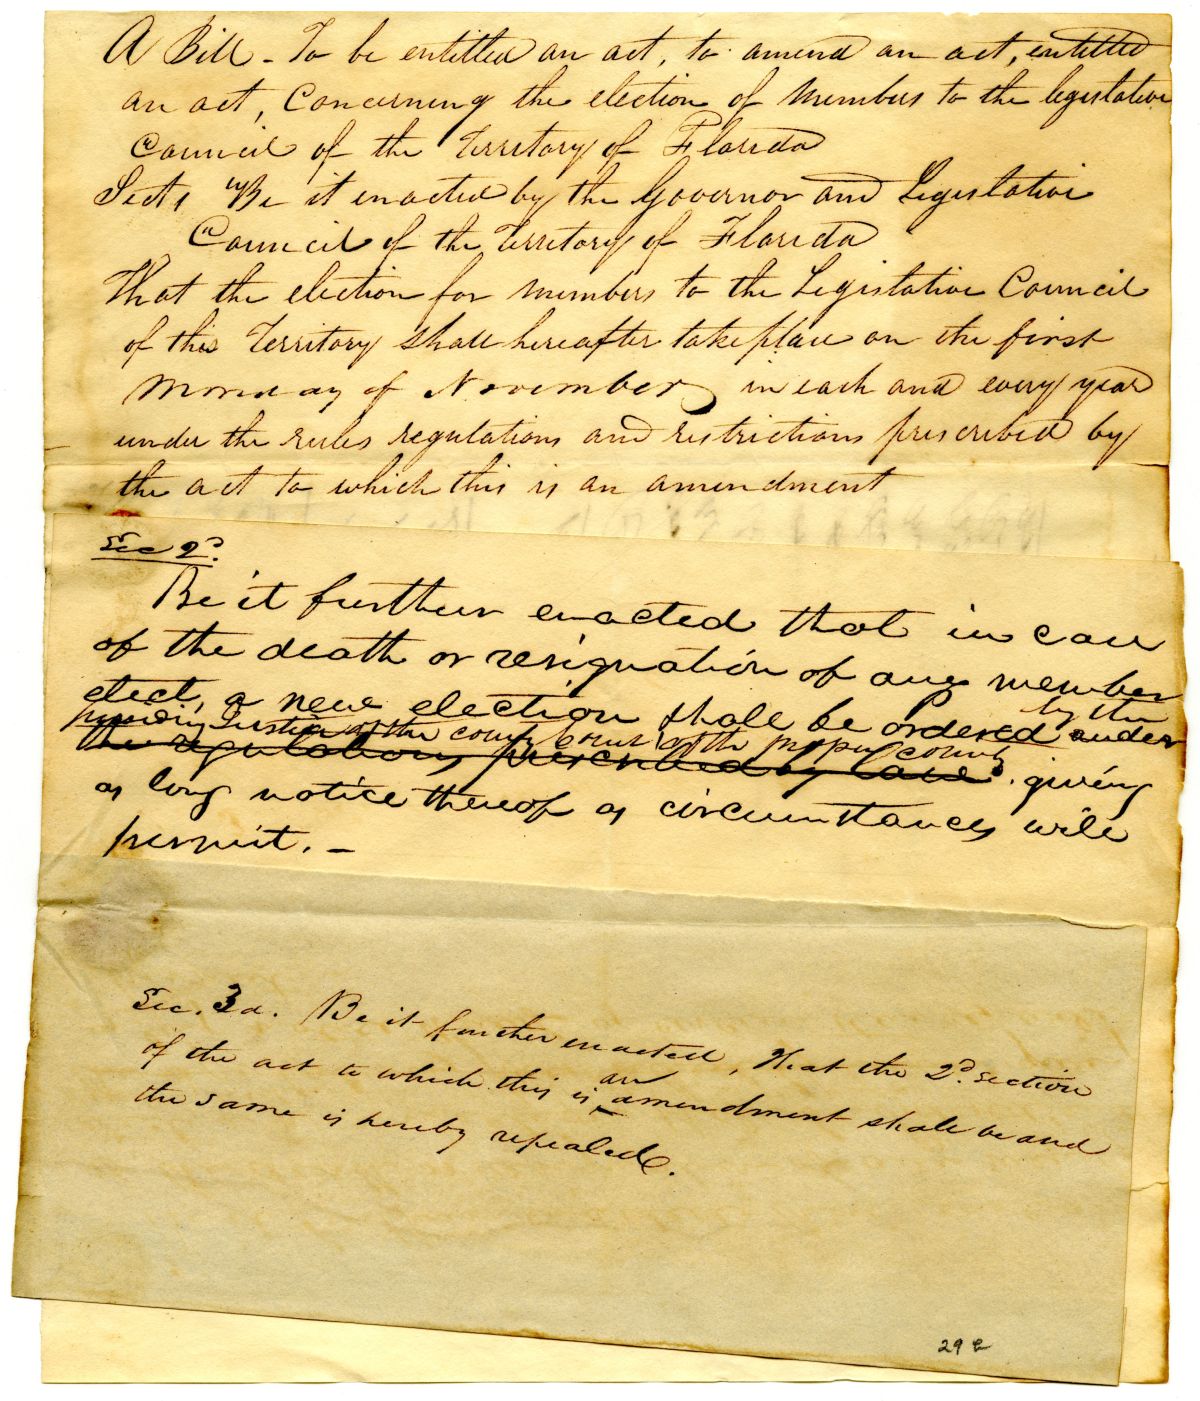 A Bill - To be entitled an act, to amend an act, entitled
an act, Concerning the election of Members to the legislative
Council of the Territory of Florida
Sect 1 Be it enacted by the Governor and Legislative
Council of the Territory of Florida
That the election for members to the Legislative Council
of this Territory shall hereafter take place on the first
Monday of November in each and every year
under the rules regulations and restrictions prescribed by
the act to which this is an amendment
Sec 2d.
Be it further enacted that in case
of the death or resignation of any member
elect, a new election shall be ordered under
by the
presiding Justice of the county court of the proper county
the regulations prescribed by law. giving
as long notice thereof as circumstances will
permit. -
Sec. 3d. Be it further enacted, That the 2d. section
of the act to which this is an amendment shall be and
the same is hereby repealed.
29